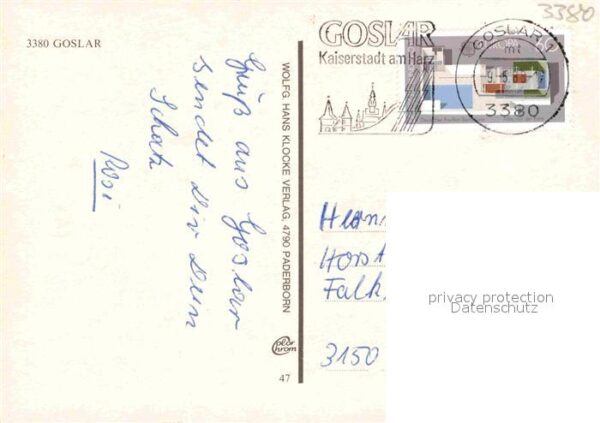 3380
3380 GOSLAR
GOSLAR
Kaiserstadt am Harz
GOSLAR
mt
3380
Gruß aus Goslar
sendet Dir Dein
Schatz
Rosi
WOLFG. HANS KLOCKE VERLAG, 4790 PADERBORN
Color
chrom
47
Herrn
Horst
Falk
3150
privacy protection
Datenschutz